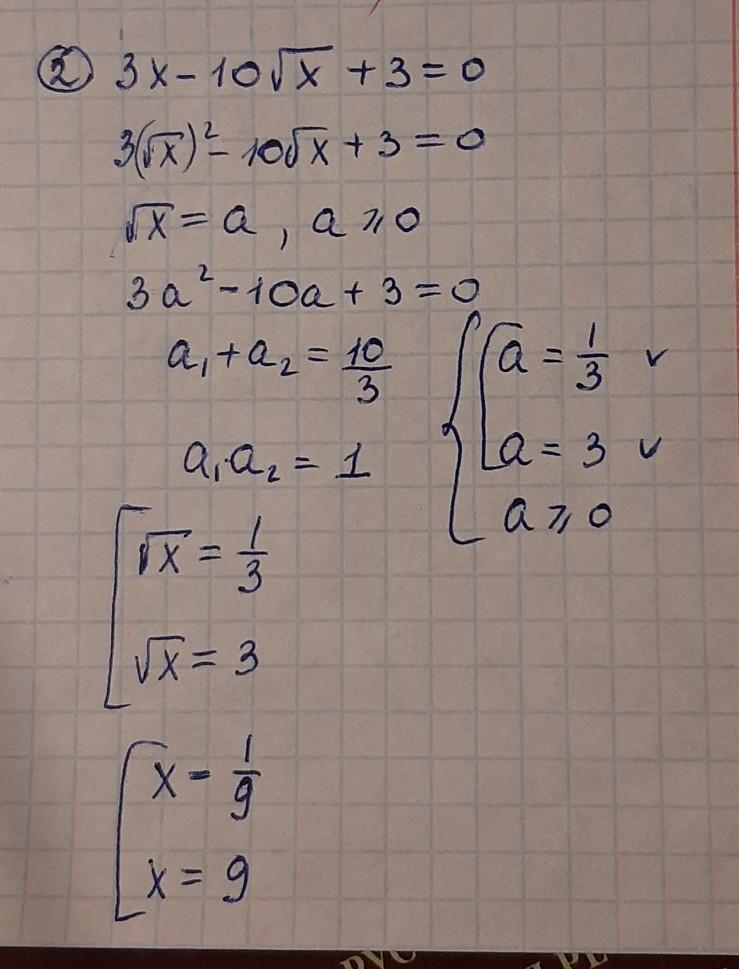 ② 3x - 10√x + 3 = 0
3(√x)² - 10√x + 3 = 0
√x = a , a ⩾ 0
3a² - 10a + 3 = 0
a₁ + a₂ = 10/3
a₁·a₂ = 1
{ [ a = 1/3 ✓
a = 3 ✓
a ⩾ 0
[ √x = 1/3
√x = 3
[ x = 1/9
x = 9